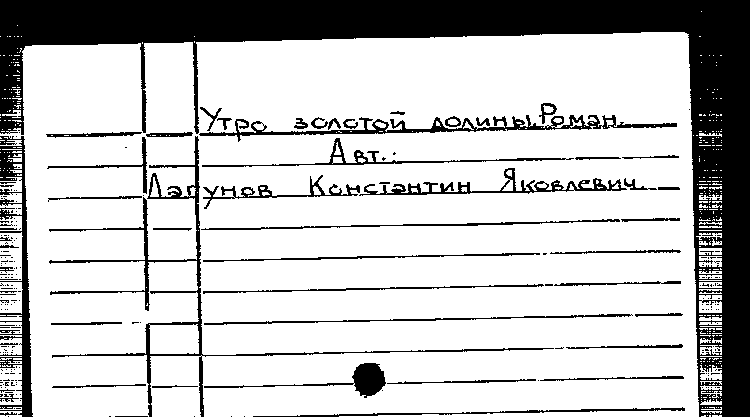 Утро золотой долины. Роман.
Авт.:
Лагунов Константин Яковлевич.